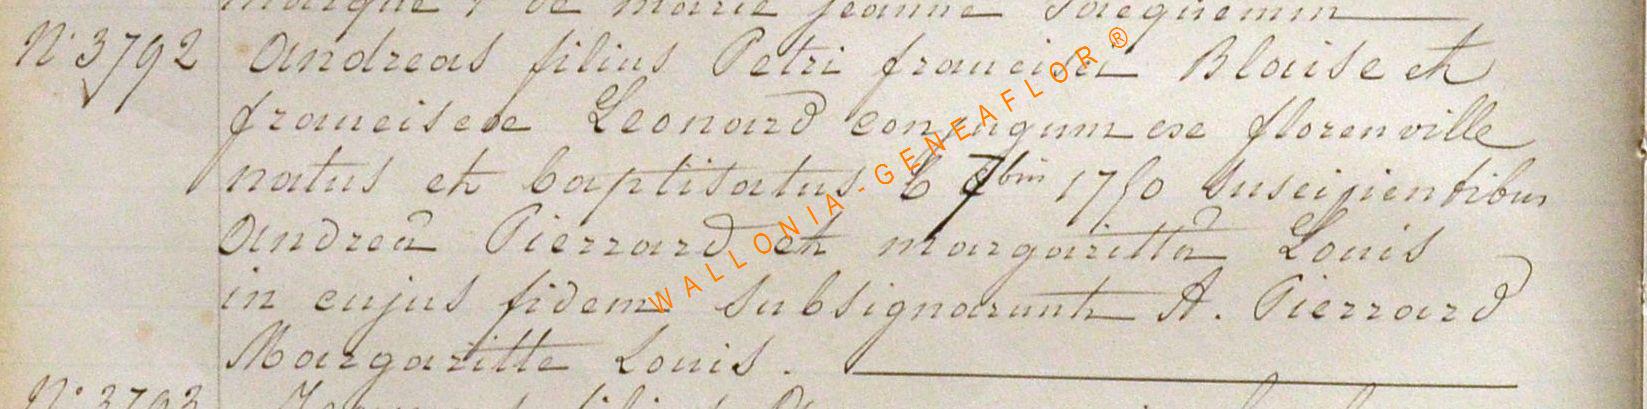 marque / de marie jeanne Jacquemin
N° 3792 Andreas filius Petri francisci Blaise et
franciscae Leonard conjugum ex florenville
natus et baptisatus 6 7bris 1750 suscipientibus
Andreâ Pierrard et margarittâ Louis
in cujus fidem subsignarunt A. Pierrard
Margaritte Louis.
N° 3793
WALLONIA-GENEAFLOR ®